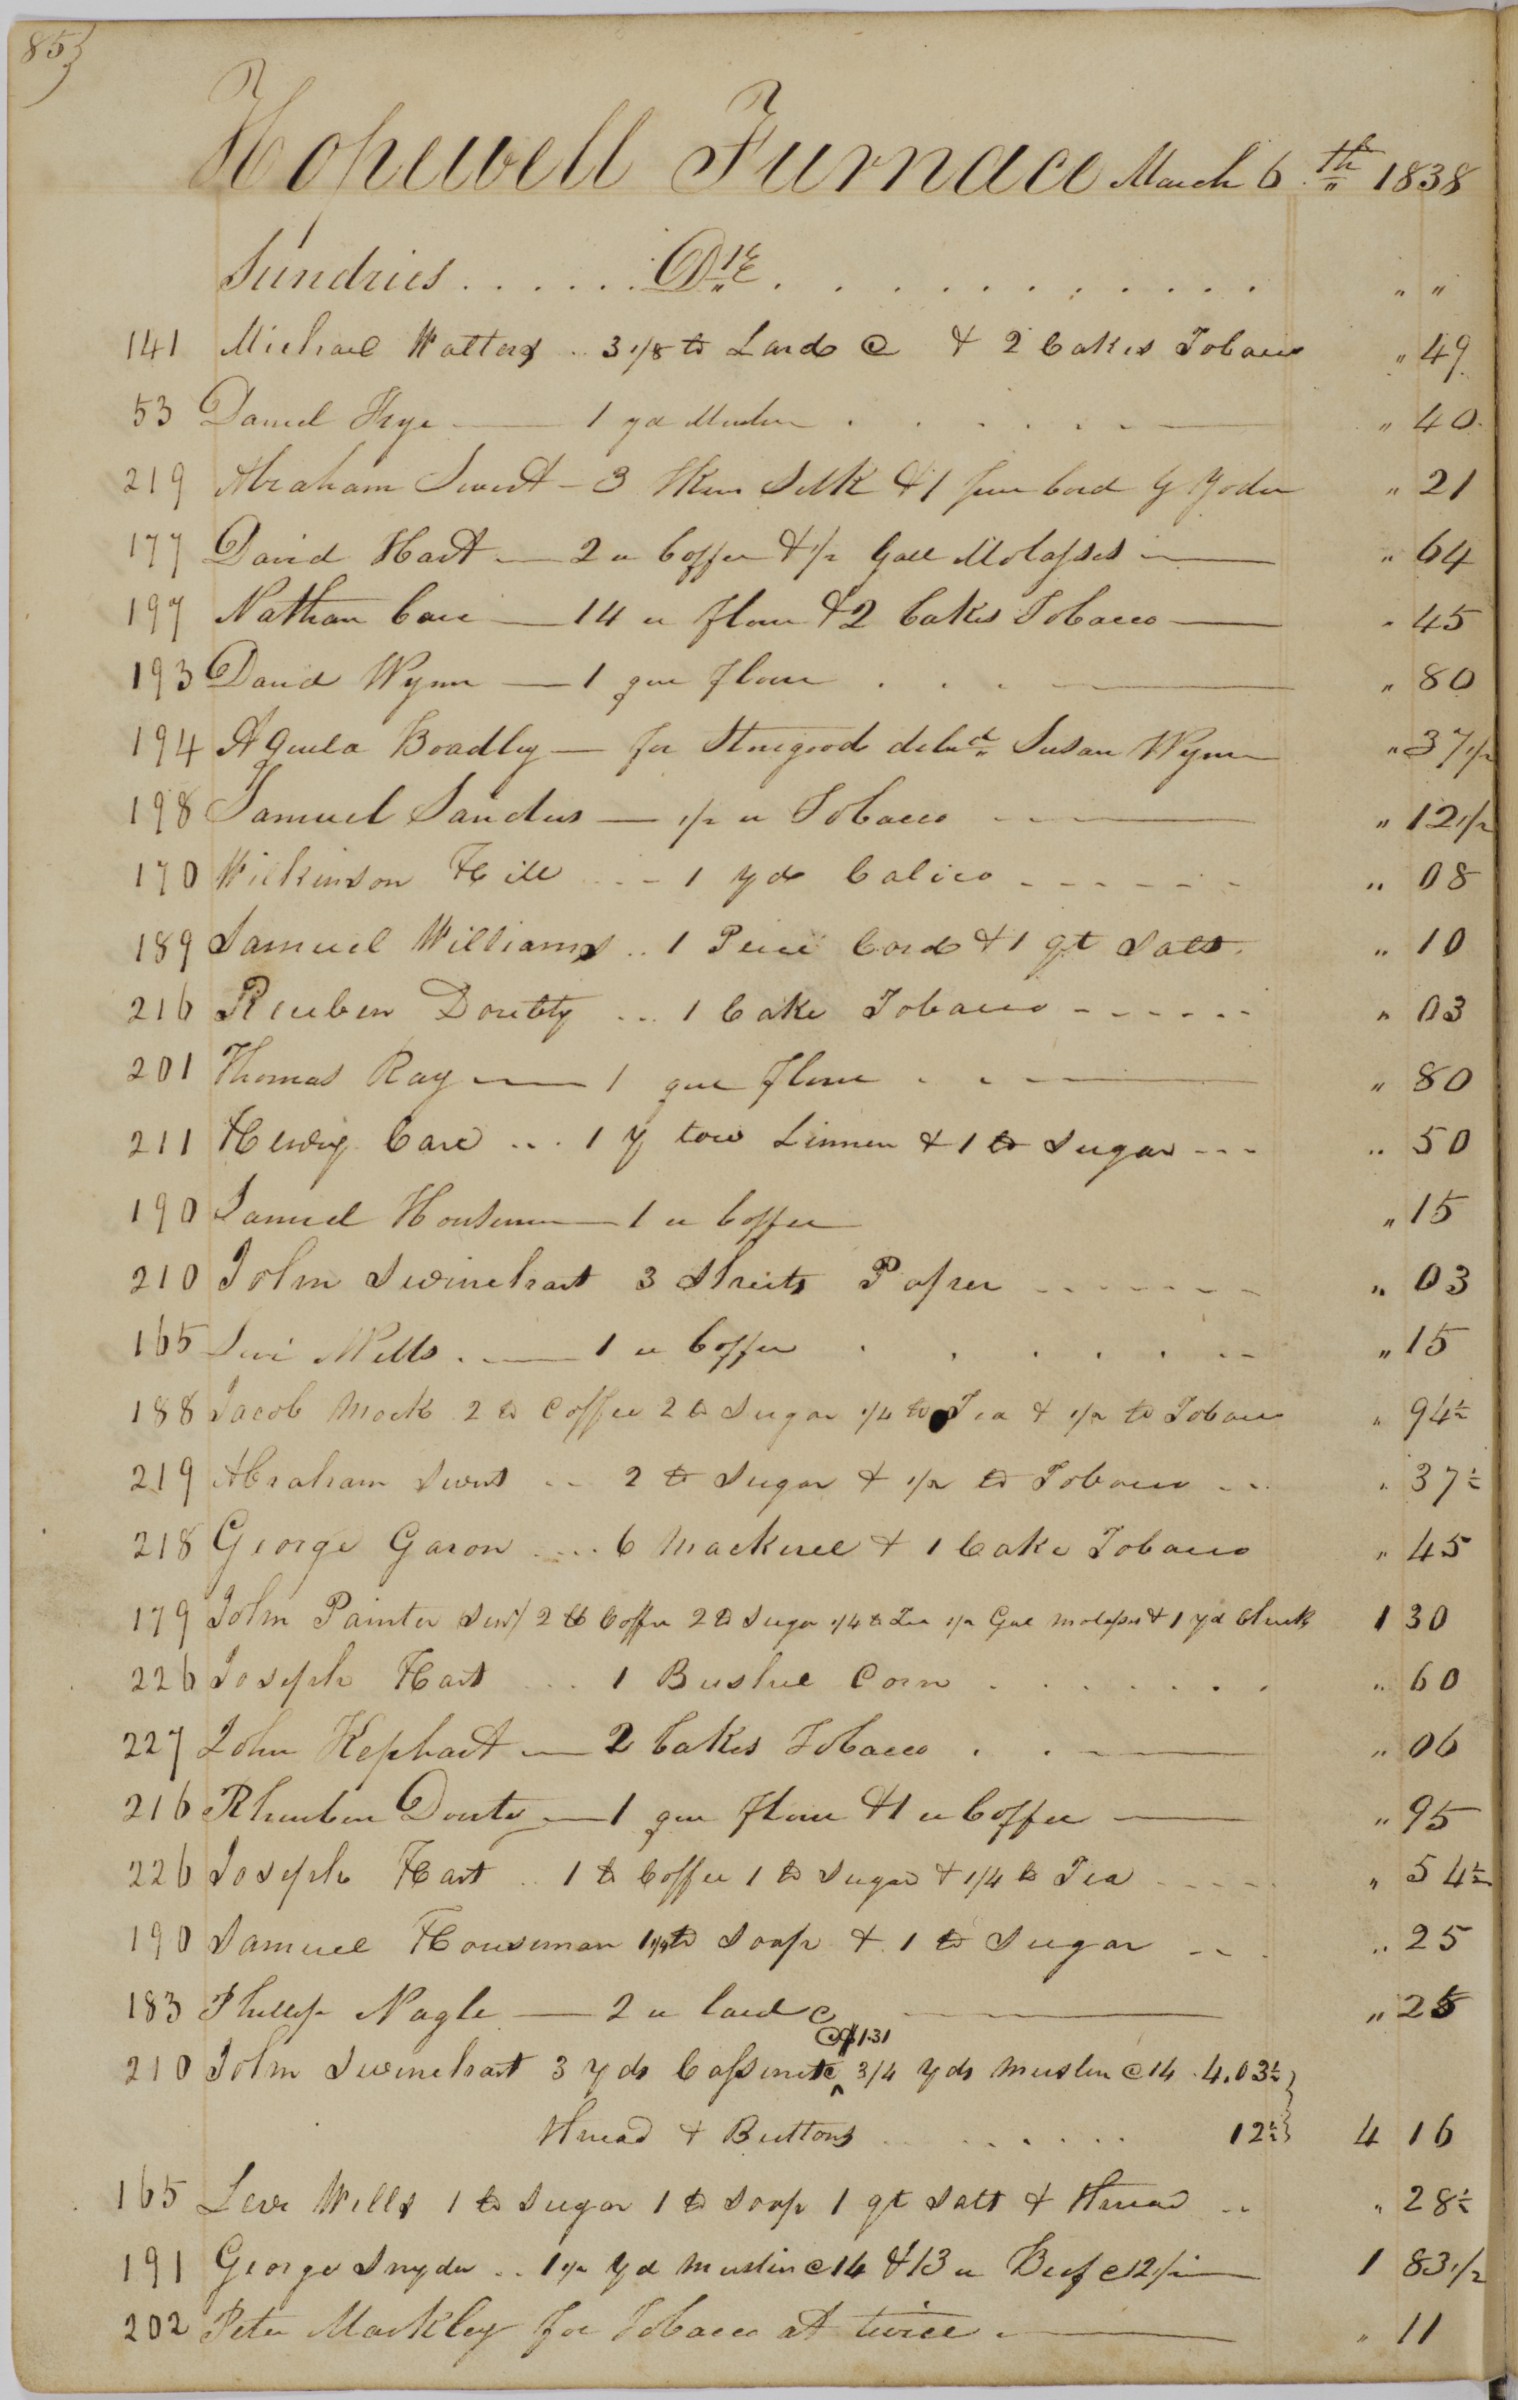 85
Hopewell Furnace March 6th 1838
Sundries ...... Drs . . . . . . . . . . . . " "
141 Michael Watters .. 3 1/8 lb Lard @ & 2 Cakes Tobacco " 49
53 Daniel Frye — 1 yd Muslin . . . . . — " 40
219 Abraham Swert – 3 Sken Silk & 1 pee Cord by Yoder " 21
177 David Hart — 2 " Coffee & 1/2 Gall Molasses — " 64
197 Nathan Care — 14 " flour & 2 Cakes Tobacco — " 45
193 David Wynn — 1 qur flour . . . — " 80
194 Aquila Boadley — for Storegoods deld Susan Wynn " 37 1/2
198 Samuel Sanders — 1/2 " Tobacco — " 12 1/2
170 Wilkinson Hill ... 1 yd Calico ------ " 08
189 Samuel Williams .. 1 Peice Cord & 1 qt Salt. " 10
216 Reuben Doubty ... 1 Cake Tobacco ------ " 03
201 Thomas Ray — 1 qur flour . . — " 80
211 Henry Care ... 1 y tow Linnen & 1 lb Sugar --- " 50
190 Samuel Houseman — 1 " Coffee " 15
210 John Swinehart 3 Sheets Paper ------ " 03
165 Levi Wells . — 1 " Coffee . . . . . . " 15
188 Jacob Mock 2 lb Coffee 2 lb Sugar 1/4 lb Tea & 1/2 lb Tobacco " 94 1/2
219 Abraham Swert .. 2 lb Sugar & 1/2 lb Tobacco ... " 37 1/2
218 George Garon .... 6 Mackerel & 1 Cake Tobacco " 45
179 John Painter Senr 2 lb Coffee 2 lb Sugar 1/4 lb Tea 1/2 Gal molasses & 1 yd Check 1 30
226 Joseph Hart ... 1 Bushel Corn . . . . . . . " 60
227 John Kephart — 2 Cakes Tobacco . . — " 06
216 Rheuben Douty — 1 qur flour & 1 " Coffee — " 95
226 Joseph Hart .. 1 lb Coffee 1 lb Sugar & 1/4 lb Tea ----- " 54 1/2
190 Samuel Houseman 1 1/2 lb Soap & 1 lb Sugar ... " 25
183 Phillip Nagle — 2 " Lard @ — " 25
@ $1.31
210 John Swinehart 3 yds Cassinete ^ 3/4 yds Muslin @ 14 . 4.03 1/2
Thread & Buttons . . . . . . 12 1/2 4 16
165 Levi Wells 1 lb Sugar 1 lb Soap 1 qt Salt & Thread .. " 28 1/2
191 George Snyder .. 1 1/2 yd Muslin @ 14 & 13 " Beef @ 12 1/2 — 1 83 1/2
202 Peter Markley for Tobacco at twice . — " 11